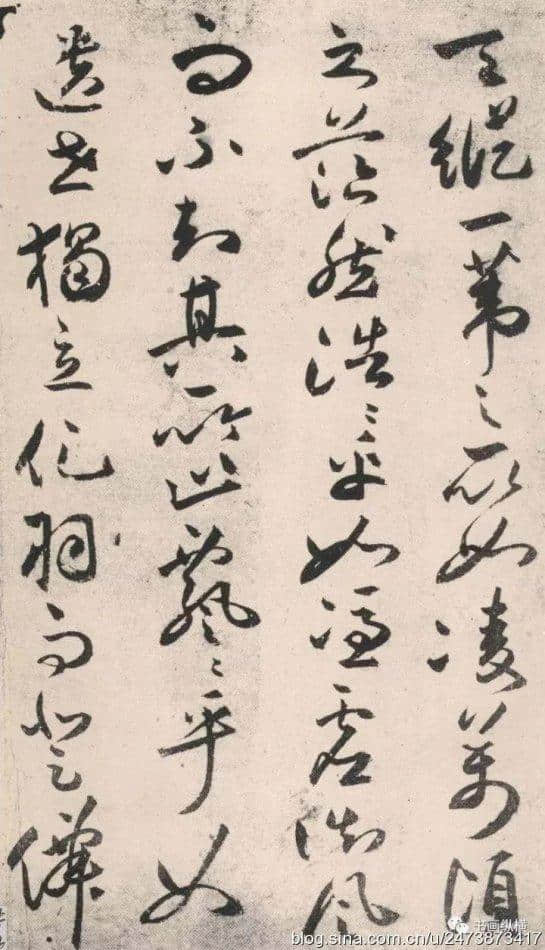 天縱一葦之所如凌萬頃
之茫然浩〻乎如馮虛御風
而不知其所止飄〻乎如
遺世獨立化羽而登僊
书画纵横
blog.sina.com.cn/u/2473873417